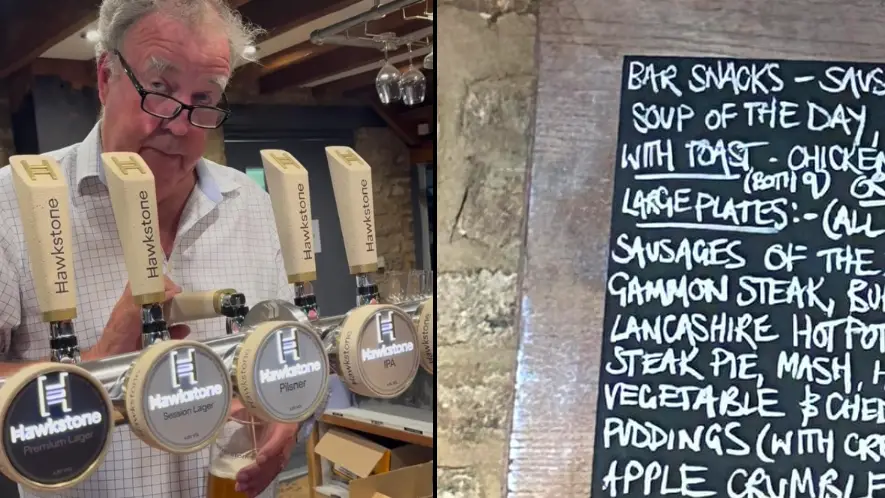 Hawkstone
Hawkstone
Hawkstone
Hawkstone
Hawkstone
Premium Lager
Hawkstone
Session Lager
Hawkstone
Pilsner
Hawkstone
IPA
BAR SNACKS - SAUS
SOUP OF THE DAY,
WITH TOAST - CHICKEN
(BOTH 9)
LARGE PLATES:- (ALL
SAUSAGES OF THE
GAMMON STEAK, BU
LANCASHIRE HOT POT
STEAK PIE, MASH, H
VEGETABLE & CHE
PUDDINGS (WITH CR
APPLE CRUMBLE